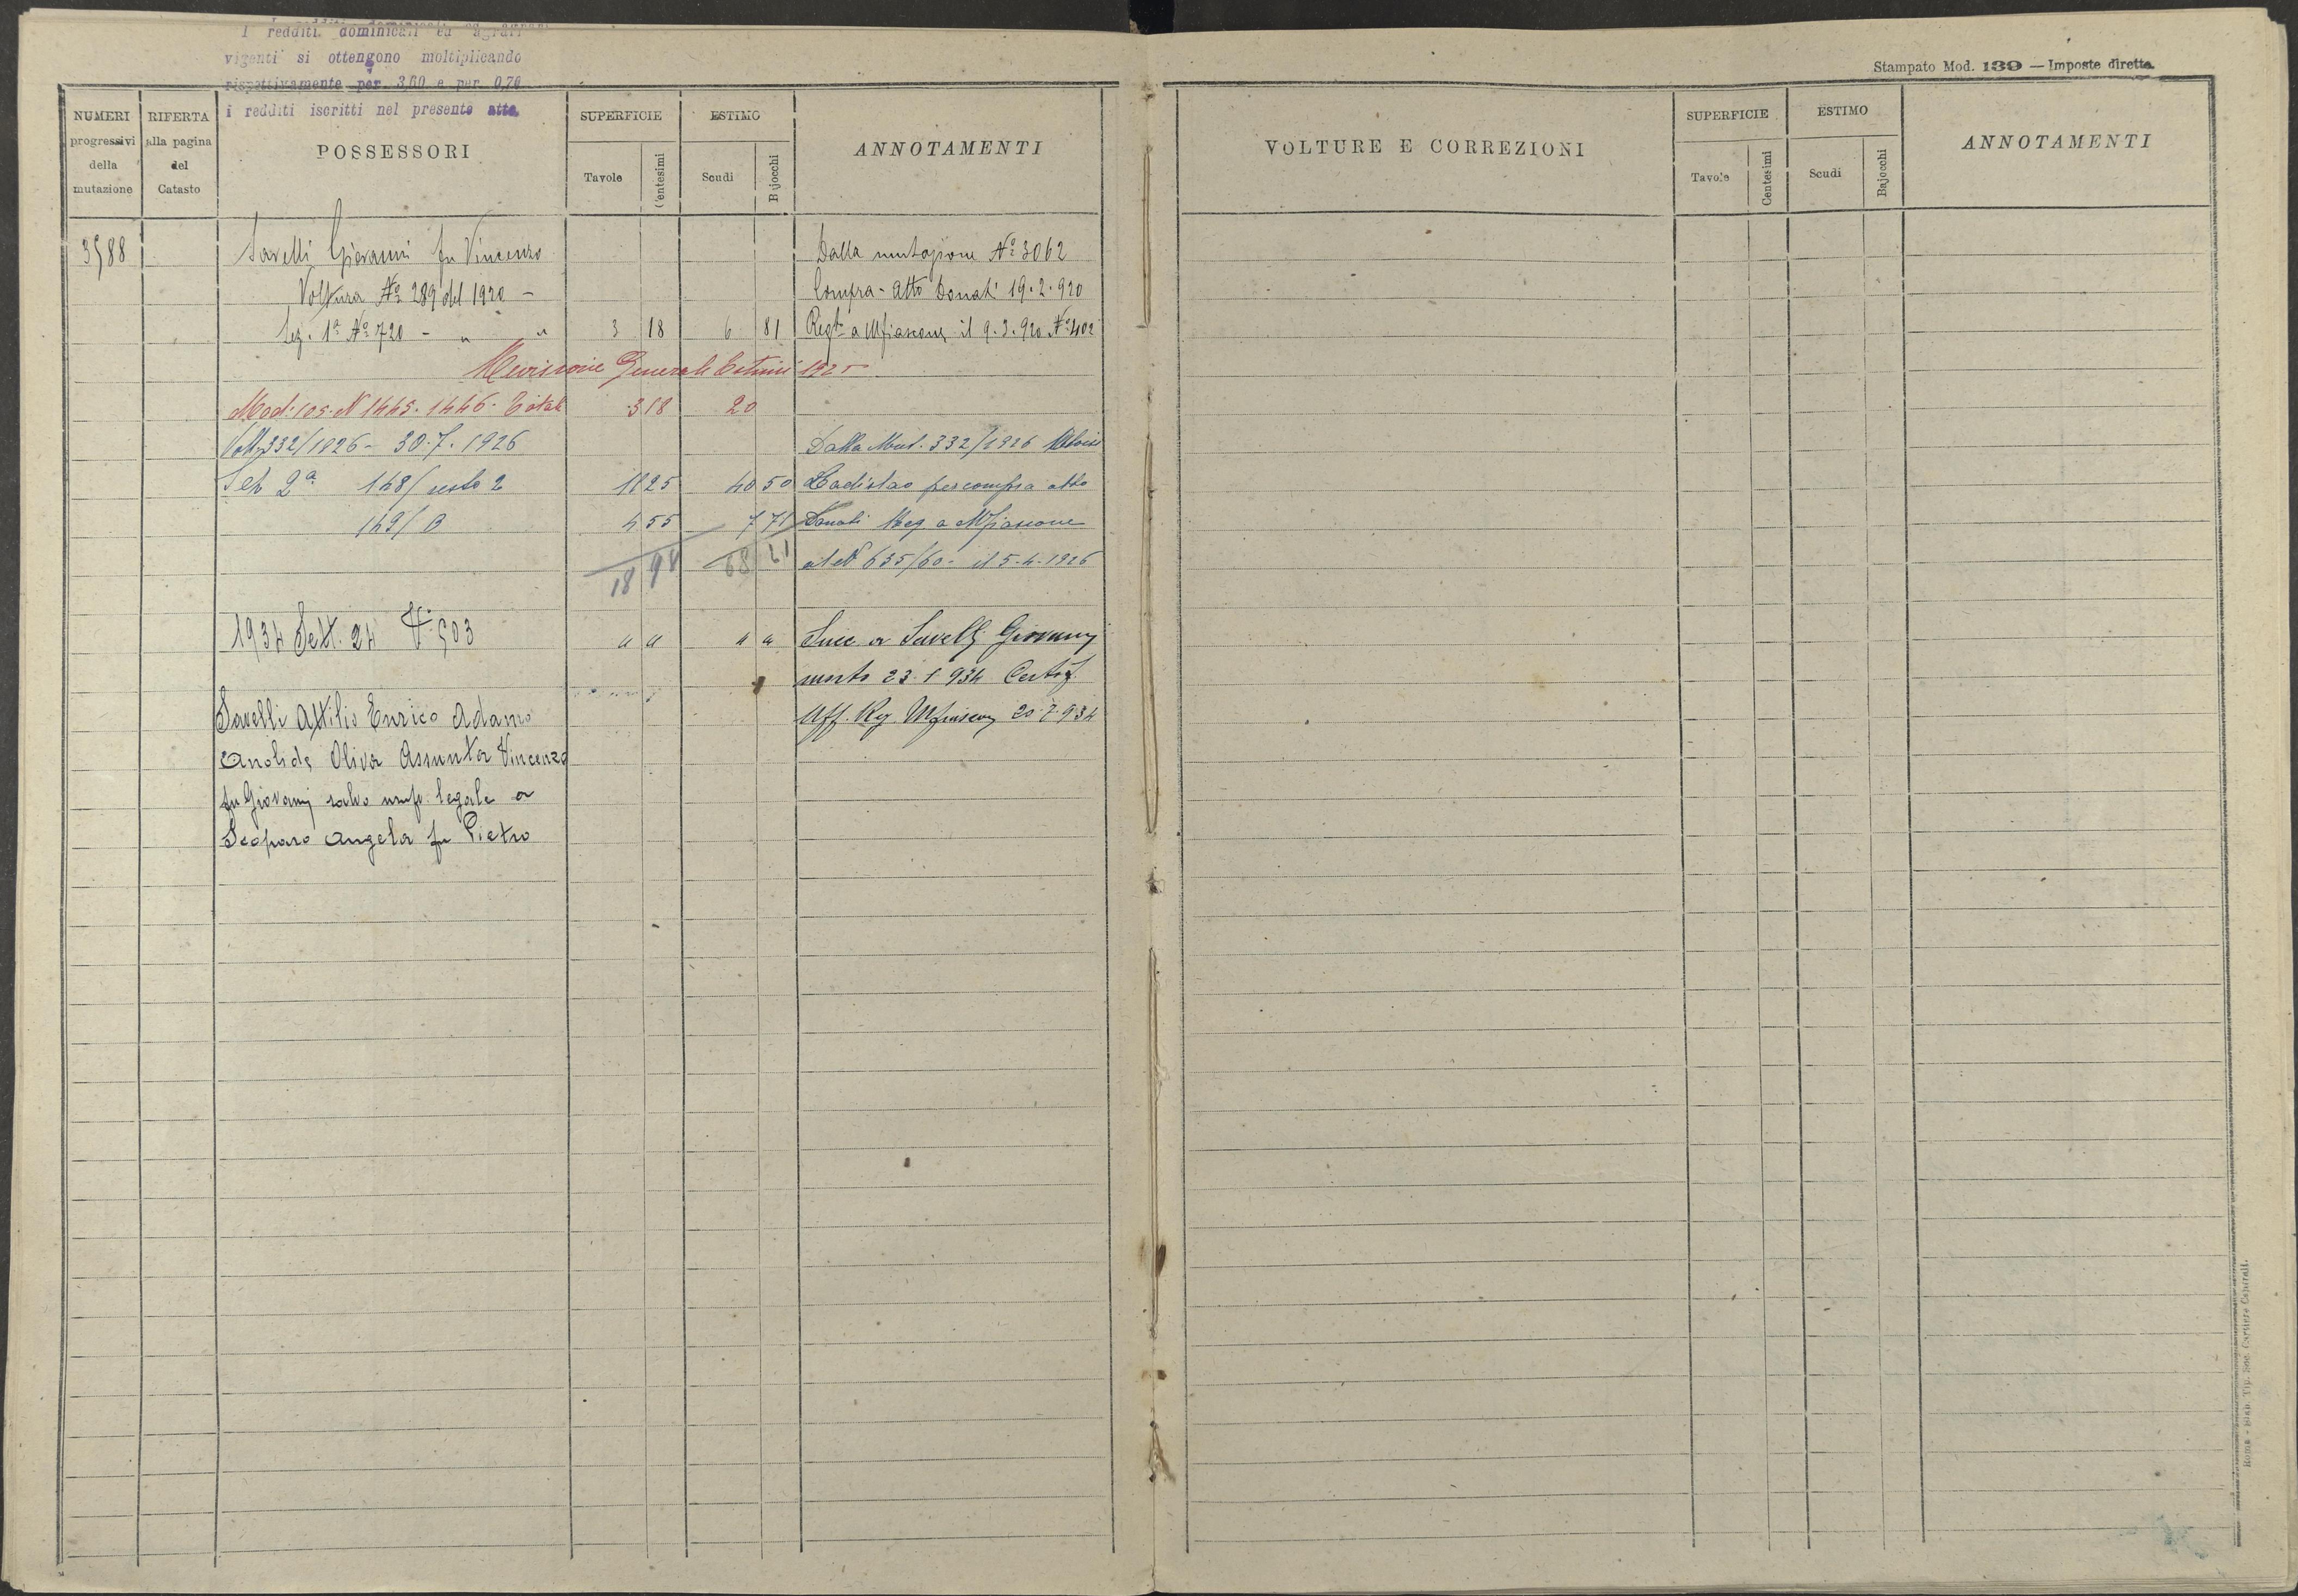 I redditi dominicali ed agrari
vigenti si ottengono moltiplicando
rispettivamente per 3,60 e per 0,70
i redditi iscritti nel presente atto.
Stampato Mod. 139 — Imposte dirette.
NUMERI progressivi della mutazione
RIFERTA alla pagina del Catasto
POSSESSORI
SUPERFICIE
Tavole Centesimi
ESTIMO
Scudi Bajocchi
ANNOTAMENTI
VOLTURE E CORREZIONI
SUPERFICIE
Tavole Centesimi
ESTIMO
Scudi Bajocchi
ANNOTAMENTI
3588 Savelli Giovanni fu Vincenzo Dalla mutazione Nº 3062
Voltura Nº 289 del 1920 - Compra - Atto Donati 19.2.920
Sez. 1ª Nº 720 - " " 3 18 6 81 Regto a Mfiascone il 9.3.920 Nº 402
Revisione Generale Estimi 1925
Mod. 105. N 1445. 1446. Totale 3 18 20
Volt 332/1926 - 30.7.1926 Dalla Mut. 332/1926
Sez 2ª 148/ resto 2 11 25 40 50 Ladislao per compra atto
149/B 4 55 7 71 Donati Reg a Mfiascone
18 98 68 21 al N 635/60 - il 5-4-1926
1934 Sett. 24 V. 503 " " " " Succ a Savelli Giovanni
morto 23 1 934 Certif
Uff. Rg Mfiascon 20 7 934
Savelli Attilio Enrico Adamo
Oliva Assunta Vincenzo
fu Giovanni salvo usuf. legale a
Scoparo Angela fu Pietro
Roma - Stab. Tip. Soc. Cartiere Centrali.